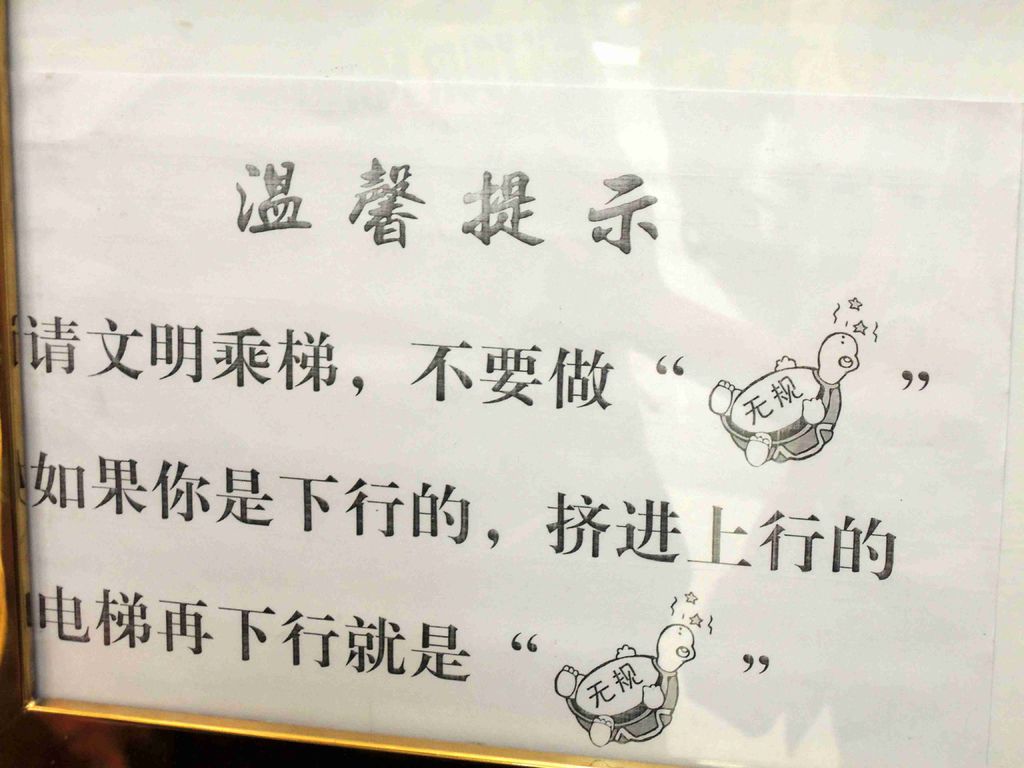 温馨提示
请文明乘梯，不要做“无规”
如果你是下行的，挤进上行的
电梯再下行就是“无规”